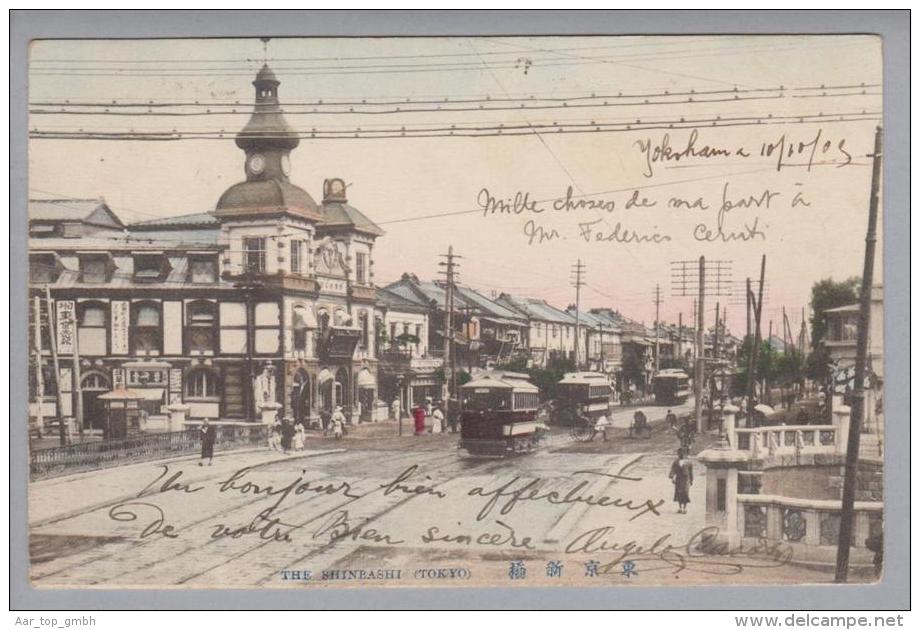 Yokohama 10/10/05
Mille choses de ma part à
Mr. Federico Ceruti
Un bonjour bien affectueux
De votre Bien sincère Angelo
THE SHINBASHI (TOKYO) 橋 新 京 東
Aar_top_gmbh
www.delcampe.net